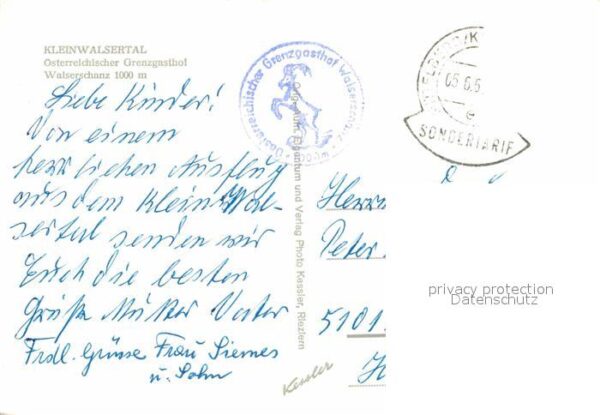 KLEINWALSERTAL
Österreichischer Grenzgasthof
Walserschanz 1000 m
Liebe Kinder!
Von einem
herrlichen Ausflug
aus dem Kleinwal-
sertal senden wir
Euch die besten
Grüße Mutter Vater
Frdl. Grüsse Frau Siemes
u. Sohn
Österreichischer Grenzgasthof Walserschanz
Eigentum und Verlag Photo Kessler, Riezlern
Kessler
05.6.5
e
SONDERTARIF
Herrn
Peter
5101
privacy protection
Datenschutz